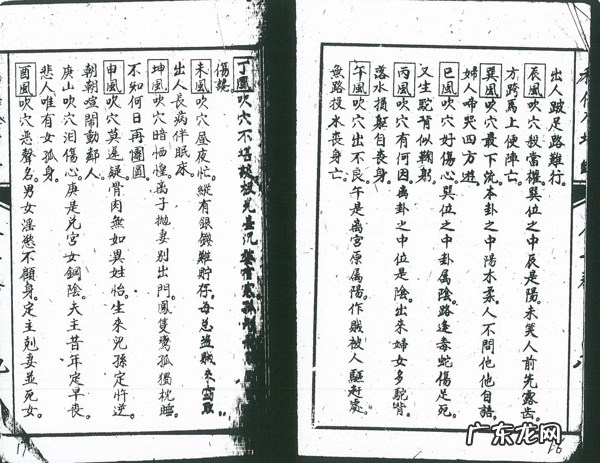 出人跛足路難行。
辰風吹穴殺當權。巽位之中辰是陽。未笑人前先露齒。
方跨馬上便陣亡。
巽風吹穴最下流。本卦之中陽木柔。人不問他他自諾。
婦人啼哭四方遊。
巳風吹穴好傷心。巽位之中卦屬陰。路逢毒蛇傷足死。
又生駝背似鞠躬。
丙風吹穴有何因。离卦之中位是陰。出來婦女多駝背。
落水損軀自喪身。
午風吹穴出不良。午是离宮原屬陽。作賊被人驅赶處。
魚路投水喪身亡。
丁風吹穴不堪
傷
未風吹穴晝夜忙。縱有銀錢難貯存。每忌盗賊來
出人長病伴眠床。
坤風吹穴暗恓惶。离子抛妻別出門。鳳隻鸞孤獨枕睡。
不知何日再團圓。
申風吹穴莫遲疑。骨肉無如異姓怡。生來兒孫定忤逆。
朝朝喧鬧動鄰人。
庚山吹穴泪傷心。庚是兌宮女鋼陰。夫主昔年定早喪。
悲人唯有女孤身。
酉風吹穴惡聲名。男女淫慾不顧身。定主剋妻並死女。
17
16
广东龙网